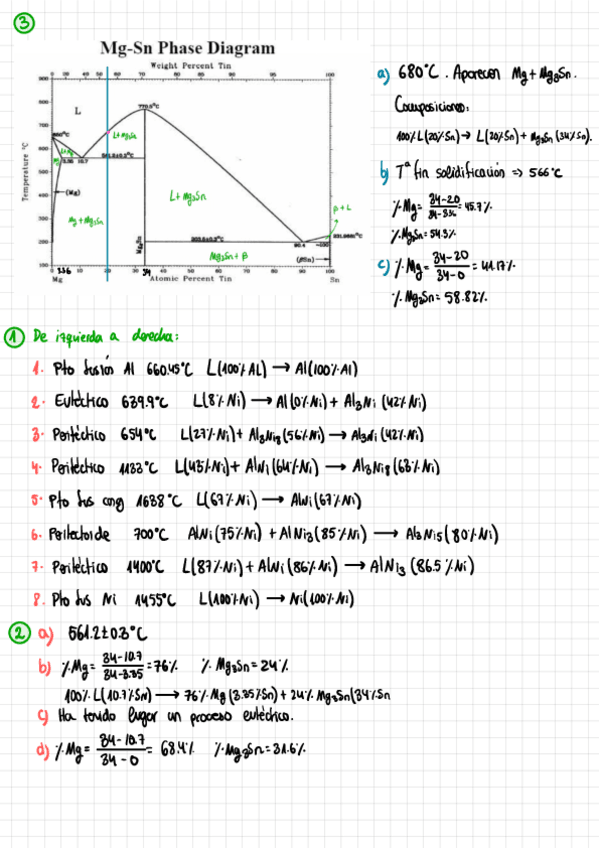 3
Mg-Sn Phase Diagram
Weight Percent Tin
0 20 30 40 50 60 70 80 90 100
Temperature °C
900
800
700
600
500
400
300
200
100
L
770.5°C
650°C
L+Mg
L+Mg₂Sn
3.35 10.7
561.2±0.3°C
(Mg)
L+Mg₂Sn
Mg+Mg₂Sn
β+L
Mg₂Sn
203.5±0.3°C
231.968°C
90.4
~100
Mg₂Sn+β
(βSn)
0 3.35 10 20 30 34 40 50 60 70 80 90 100
Mg Atomic Percent Tin Sn
a) 680°C. Aparecen Mg + Mg₂Sn.
Composiciones:
100% L(20%Sn) → L(20%Sn) + Mg₂Sn (34%Sn).
b) Tª fin solidificación ⇒ 566°C
%Mg = 34-20 / 34-3.35 = 45.7%
%Mg₂Sn = 54.3%
c) %Mg = 34-20 / 34-0 = 41.17%
%Mg₂Sn = 58.82%
1 De izquierda a derecha:
1. Pto fusión Al 660.45°C L(100% AL) → Al(100% Al)
2. Eutéctico 639.9°C L(8% Ni) → Al(0% Ni) + Al₃Ni (42% Ni)
3. Peritéctico 654°C L(27% Ni) + Al₃Ni₂(56% Ni) → Al₃Ni (42% Ni)
4. Peritéctico 1133°C L(45% Ni) + AlNi(64% Ni) → Al₃Ni₂(63% Ni)
5. Pto fus cong 1638°C L(67% Ni) → AlNi(67% Ni)
6. Peritectoide 700°C AlNi(75% Ni) + AlNi₃(85% Ni) → Al₃Ni₅(80% Ni)
7. Peritéctico 1400°C L(87% Ni) + AlNi(86% Ni) → AlNi₃ (86.5% Ni)
8. Pto fus Ni 1455°C L(100% Ni) → Ni(100% Ni)
2 a) 561.2±0.3°C
b) %Mg = 34-10.7 / 34-3.35 = 76% %Mg₂Sn = 24%
100% L(10.7% Sn) → 76% Mg(3.35% Sn) + 24% Mg₂Sn(34% Sn
c) Ha tenido lugar un proceso eutéctico.
d) %Mg = 34-10.7 / 34-0 = 68.4% %Mg₂Sn = 31.6%